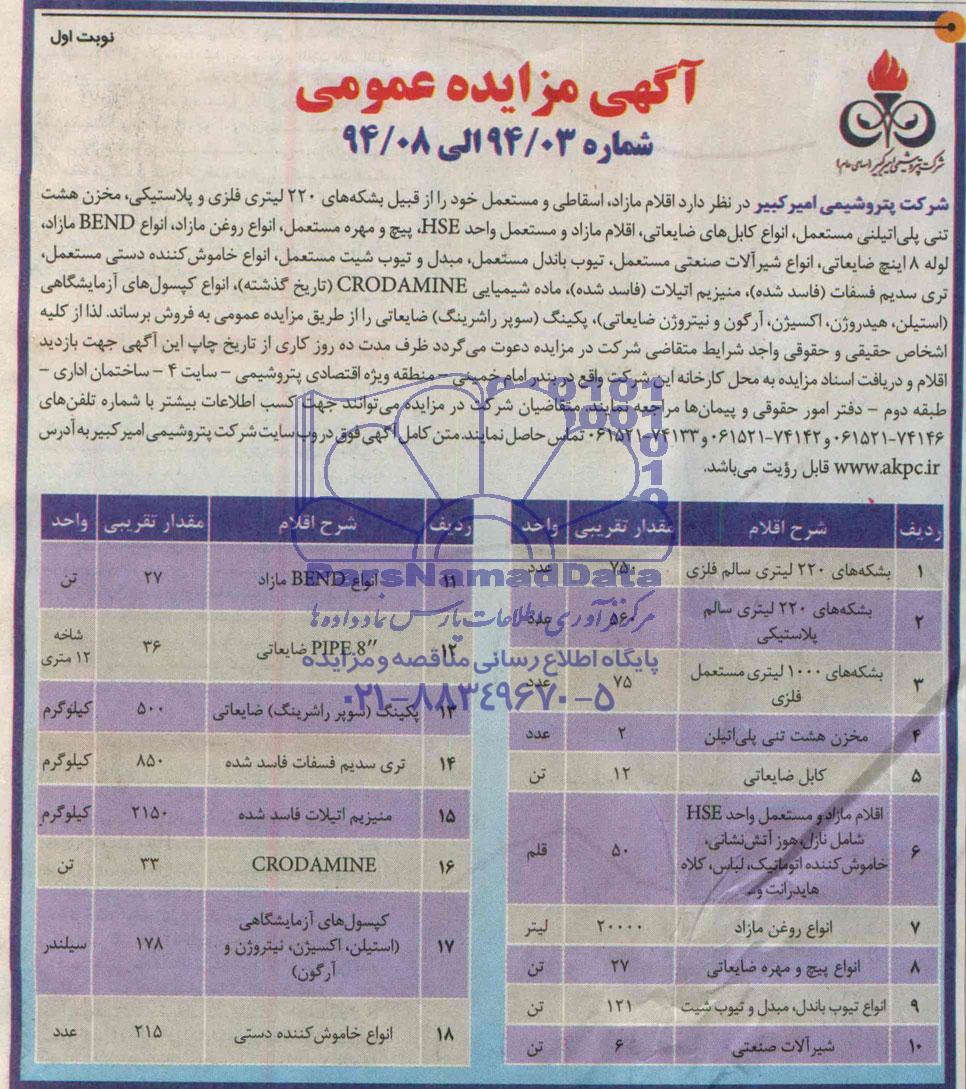 نوبت اول
آگهی مزایده عمومی
شماره ۹۴/۰۳ الی ۹۴/۰۸
شرکت پتروشیمی امیرکبیر (سهامی عام)
شرکت پتروشیمی امیرکبیر در نظر دارد اقلام مازاد، اسقاطی و مستعمل خود را از قبیل بشکه‌های ۲۲۰ لیتری فلزی و پلاستیکی، مخزن هشت
تنی پلی‌اتیلنی مستعمل، انواع کابل‌های ضایعاتی، اقلام مازاد و مستعمل واحد HSE، پیچ و مهره مستعمل، انواع روغن مازاد، انواع BEND مازاد،
لوله ۸ اینچ ضایعاتی، انواع شیرآلات صنعتی مستعمل، تیوب باندل مستعمل، مبدل و تیوب شیت مستعمل، انواع خاموش‌کننده دستی مستعمل،
تری سدیم فسفات (فاسد شده)، منیزیم اتیلات (فاسد شده)، ماده شیمیایی CRODAMINE (تاریخ گذشته)، انواع کپسول‌های آزمایشگاهی
(استیلن، هیدروژن، اکسیژن، آرگون و نیتروژن ضایعاتی)، پکینگ (سوپر راشرینگ) ضایعاتی را از طریق مزایده عمومی به فروش برساند. لذا از کلیه
اشخاص حقیقی و حقوقی واجد شرایط متقاضی شرکت در مزایده دعوت می‌گردد ظرف مدت ده روز کاری از تاریخ چاپ این آگهی جهت بازدید
اقلام و دریافت اسناد مزایده به محل کارخانه این شرکت واقع در بندر امام خمینی – منطقه ویژه اقتصادی پتروشیمی – سایت ۴ – ساختمان اداری –
طبقه دوم – دفتر امور حقوقی و پیمان‌ها مراجعه نمایند. متقاضیان شرکت در مزایده می‌توانند جهت کسب اطلاعات بیشتر با شماره تلفن‌های
۰۶۱۵۲۱-۷۴۱۴۶ و ۰۶۱۵۲۱-۷۴۱۴۲ و ۰۶۱۵۲۱-۷۴۱۳۳ تماس حاصل نمایند. متن کامل آگهی فوق در وب سایت شرکت پتروشیمی امیرکبیر به آدرس
www.akpc.ir قابل رؤیت می‌باشد.
ردیف شرح اقلام مقدار تقریبی واحد
۱ بشکه‌های ۲۲۰ لیتری سالم فلزی ۷۵۰ عدد
۲ بشکه‌های ۲۲۰ لیتری سالم پلاستیکی ۵۶۰ عدد
۳ بشکه‌های ۱۰۰۰ لیتری مستعمل فلزی ۷۵ عدد
۴ مخزن هشت تنی پلی‌اتیلن ۲ عدد
۵ کابل ضایعاتی ۱۲ تن
۶ اقلام مازاد و مستعمل واحد HSE
شامل نازل، هوز آتش‌نشانی،
خاموش کننده اتوماتیک، لباس، کلاه
هایدرانت و... ۵۰ قلم
۷ انواع روغن مازاد ۲۰۰۰۰ لیتر
۸ انواع پیچ و مهره ضایعاتی ۲۷ تن
۹ انواع تیوب باندل، مبدل و تیوب شیت ۱۲۱ تن
۱۰ شیرآلات صنعتی ۶ تن
ردیف شرح اقلام مقدار تقریبی واحد
۱۱ انواع BEND مازاد ۲۷ تن
۱۲ PIPE 8″ ضایعاتی ۳۶ شاخه ۱۲ متری
۱۳ پکینگ (سوپر راشرینگ) ضایعاتی ۵۰۰ کیلوگرم
۱۴ تری سدیم فسفات فاسد شده ۸۵۰ کیلوگرم
۱۵ منیزیم اتیلات فاسد شده ۲۱۵۰ کیلوگرم
۱۶ CRODAMINE ۳۳ تن
۱۷ کپسول‌های آزمایشگاهی
(استیلن، اکسیژن، نیتروژن و
آرگون) ۱۷۸ سیلندر
۱۸ انواع خاموش‌کننده دستی ۲۱۵ عدد
ParsNamadData
مرکز فرآوری اطلاعات پارس نماد داده‌ها
پایگاه اطلاع رسانی مناقصه و مزایده
۰۲۱-۸۸۳۴۹۶۷۰-۵